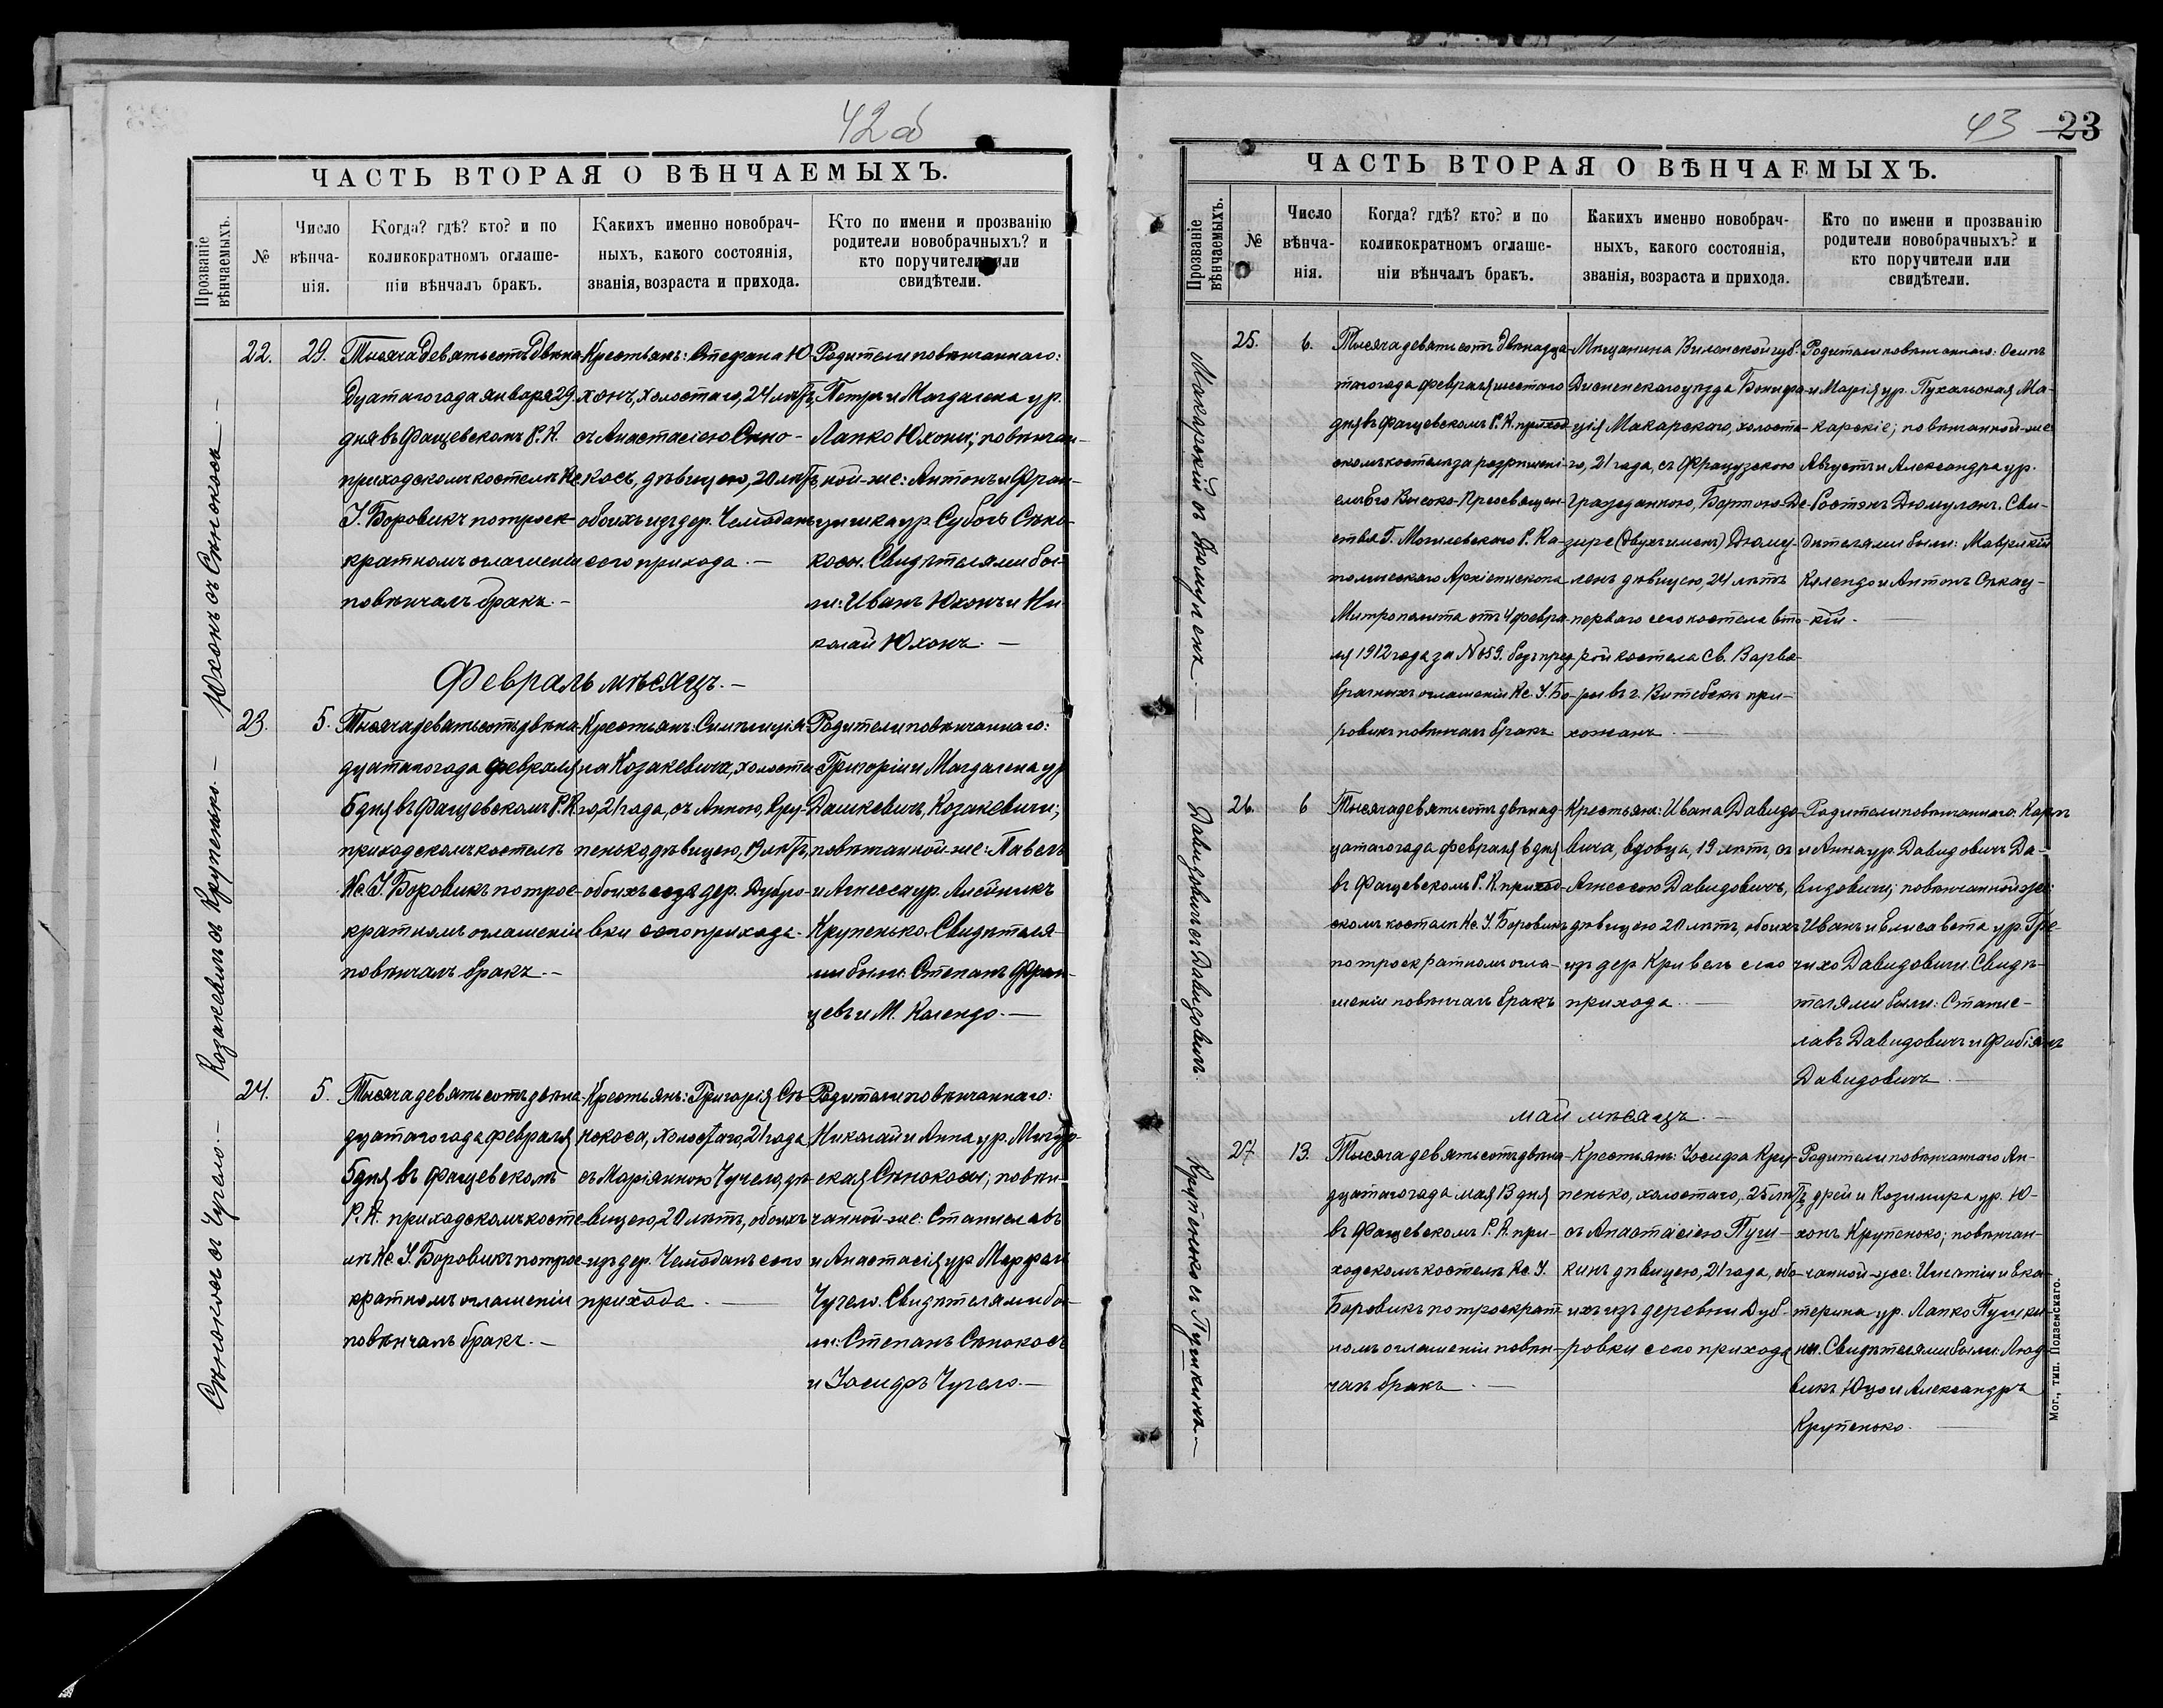 42об
ЧАСТЬ ВТОРАЯ О ВѢНЧАЕМЫХЪ.
Прозваніе вѣнчаемыхъ.
№
Число вѣнча-нія.
Когда? гдѣ? кто? и по
коликократномъ оглаше-
ніи вѣнчалъ бракъ.
Какихъ именно новобрач-
ныхъ, какого состоянія,
званія, возраста и прихода.
Кто по имени и прозванію
родители новобрачныхъ? и
кто поручители или
свидѣтели.
Юхонъ съ Сѣнокосъ.
22.
29.
Тысяча девятьсотъ двѣна-
дцатаго года января 29
дня въ Фащевскомъ Р. К.
приходскомъ костелѣ Кс.
І. Боровикъ по троек-
кратномъ оглашеніи
повѣнчалъ бракъ. —
Крестьянъ: Стефана Ю-
хонъ, холостаго, 24 лѣтъ,
съ Анастасіею Сѣно-
косъ, дѣвицею, 20 лѣтъ,
обоихъ изъ дер. Чемоданъ
сего прихода. —
Родители повѣнчаннаго:
Петръ и Магдалена ур.
Лапко Юхоны; повѣнчан-
ной-же: Антонъ и Фран-
цишка ур. Суботь Сѣно-
косы. Свидѣтелями бы-
ли: Иванъ Юхонъ и Ни-
колай Юхонъ. —
Февраль мѣсяцъ. —
Козакевичъ съ Крупенько. —
23.
5.
Тысяча девятьсотъ двѣна-
дцатаго года февраля
5 дня въ Фащевскомъ Р. К.
приходскомъ костелѣ
Кс. І. Боровикъ по трое-
кратномъ оглашеніи
повѣнчалъ бракъ. —
Крестьянъ: Симплиція-
на Козакевича, холоста-
го, 21 года, съ Анною Кру-
пенько дѣвицею, 19 лѣтъ,
обоихъ изъ дер. Дубро-
вки сего прихода. —
Родители повѣнчаннаго:
Григорій и Магдалена ур.
Дашкевичъ, Козакевичи;
повѣнчанной-же: Павелъ
и Агнесса ур. Алейникъ
Крупенько. Свидѣтеля-
ми были: Степанъ Фран-
цевъ и М. Колендо. —
Сѣнокосъ съ Чучело. —
24.
5.
Тысяча девятьсотъ двѣна-
дцатаго года февраля
5 дня въ Фащевскомъ
Р. К. приходскомъ косте-
лѣ Кс. І. Боровикъ по трое-
кратномъ оглашеніи
повѣнчалъ бракъ. —
Крестьянъ: Григорія Сѣ-
нокоса, холостаго, 21 года
съ Маріянною Чучело, дѣ-
вицею, 20 лѣтъ, обоихъ
изъ дер. Чемоданъ сего
прихода. —
Родители повѣнчаннаго:
Николай и Анна ур.
Сѣнокосы; повѣн-
чанной-же: Станиславъ
и Анастасія ур.
Чучело. Свидѣтелями бы-
ли: Степанъ Сѣнокосъ
и Іосифъ Чучело. —
43 23
ЧАСТЬ ВТОРАЯ О ВѢНЧАЕМЫХЪ.
Прозваніе вѣнчаемыхъ.
№
Число вѣнча-нія.
Когда? гдѣ? кто? и по
коликократномъ оглаше-
ніи вѣнчалъ бракъ.
Какихъ именно новобрач-
ныхъ, какого состоянія,
званія, возраста и прихода.
Кто по имени и прозванію
родители новобрачныхъ? и
кто поручители или
свидѣтели.
Макарскій съ Дюмуленъ. —
25.
6.
Тысяча девятьсотъ двѣнадца-
таго года февраля шестаго
дня въ Фащевскомъ Р. К. приход-
скомъ костелѣ за разрѣшені-
емъ Его Высоко-Преосвящен-
ства Г. Могилевскаго Р. Ка-
толическаго Архіепископа
Митрополита отъ 4 февра-
ля 1912 года за № 659. безъ пред-
брачныхъ оглашеній Кс. І. Бо-
ровикъ повѣнчалъ бракъ
Мѣщанина Виленской губ.
Дисненскаго уѣзда Бонифа-
ція Макарскаго, холоста-
го, 21 года, съ Французскою
гражданкою, Бертою-Де-
зире (двухъ именъ) Дюму-
ленъ дѣвицею, 24 лѣтъ
перваго сего костела вто-
рой костела Св. Варва-
ры въ г. Витебскѣ при-
хожанъ. —
Родители повѣнчаннаго: Осипъ
и Марія ур. Пухальская Ма-
карскіе; повѣнчанной-же
Августъ и Александра ур.
Бостянъ Дюмуленъ. Сви-
дѣтелями были: Маврикій
Колендо и Антонъ
кій. —
Давидовичъ съ Давидовичъ.
26.
6
Тысяча девятьсотъ двѣнад-
цатаго года февраля 6 дня
въ Фащевскомъ Р. К. приход-
скомъ костелѣ Кс. І. Боровикъ
по троекратномъ огла-
шеніи повѣнчалъ бракъ
Крестьян: Ивана Давидо-
вича, вдовца, 19 лѣтъ, съ
Агнессою Давидовичъ,
дѣвицею 20 лѣтъ, обоихъ
изъ дер Кривель сего
прихода. —
Родители повѣнчаннаго: Карлъ
и Анна ур. Давидовичъ Да-
видовичи; повѣнчанной же:
Иванъ и Елисавета ур. Гре-
чихо Давидовичи. Свидѣ-
телями были: Станис-
лавъ Давидовичъ и Фабіянъ
Давидовичъ. —
май мѣсяцъ. —
Крупенько съ Пушкинъ. —
27
13.
Тысяча девятьсотъ двѣна-
дцатаго года мая 13 дня
въ Фащевскомъ Р. К. при-
ходскомъ костелѣ Кс. І.
Боровикъ по троекрат-
номъ оглашеніи повѣн-
чалъ бракъ. —
Крестьянъ: Іосифа Кру-
пенько, холостаго, 25 лѣтъ
съ Анастасіею Пуш-
кинъ дѣвицею, 21 года, обо-
ихъ изъ деревни Дуб-
ровки сего прихода
Родители повѣнчаннаго Ан-
дрей и Казимира ур. Ю-
хонъ Крупенько; повѣнчан-
чанной-же: Игнатій и Ека-
терина ур. Лапко Пушки-
ны. Свидѣтелями были: Люд-
викъ Юцо и Александръ
Крупенько. —
Мог., тип. Подземскаго.